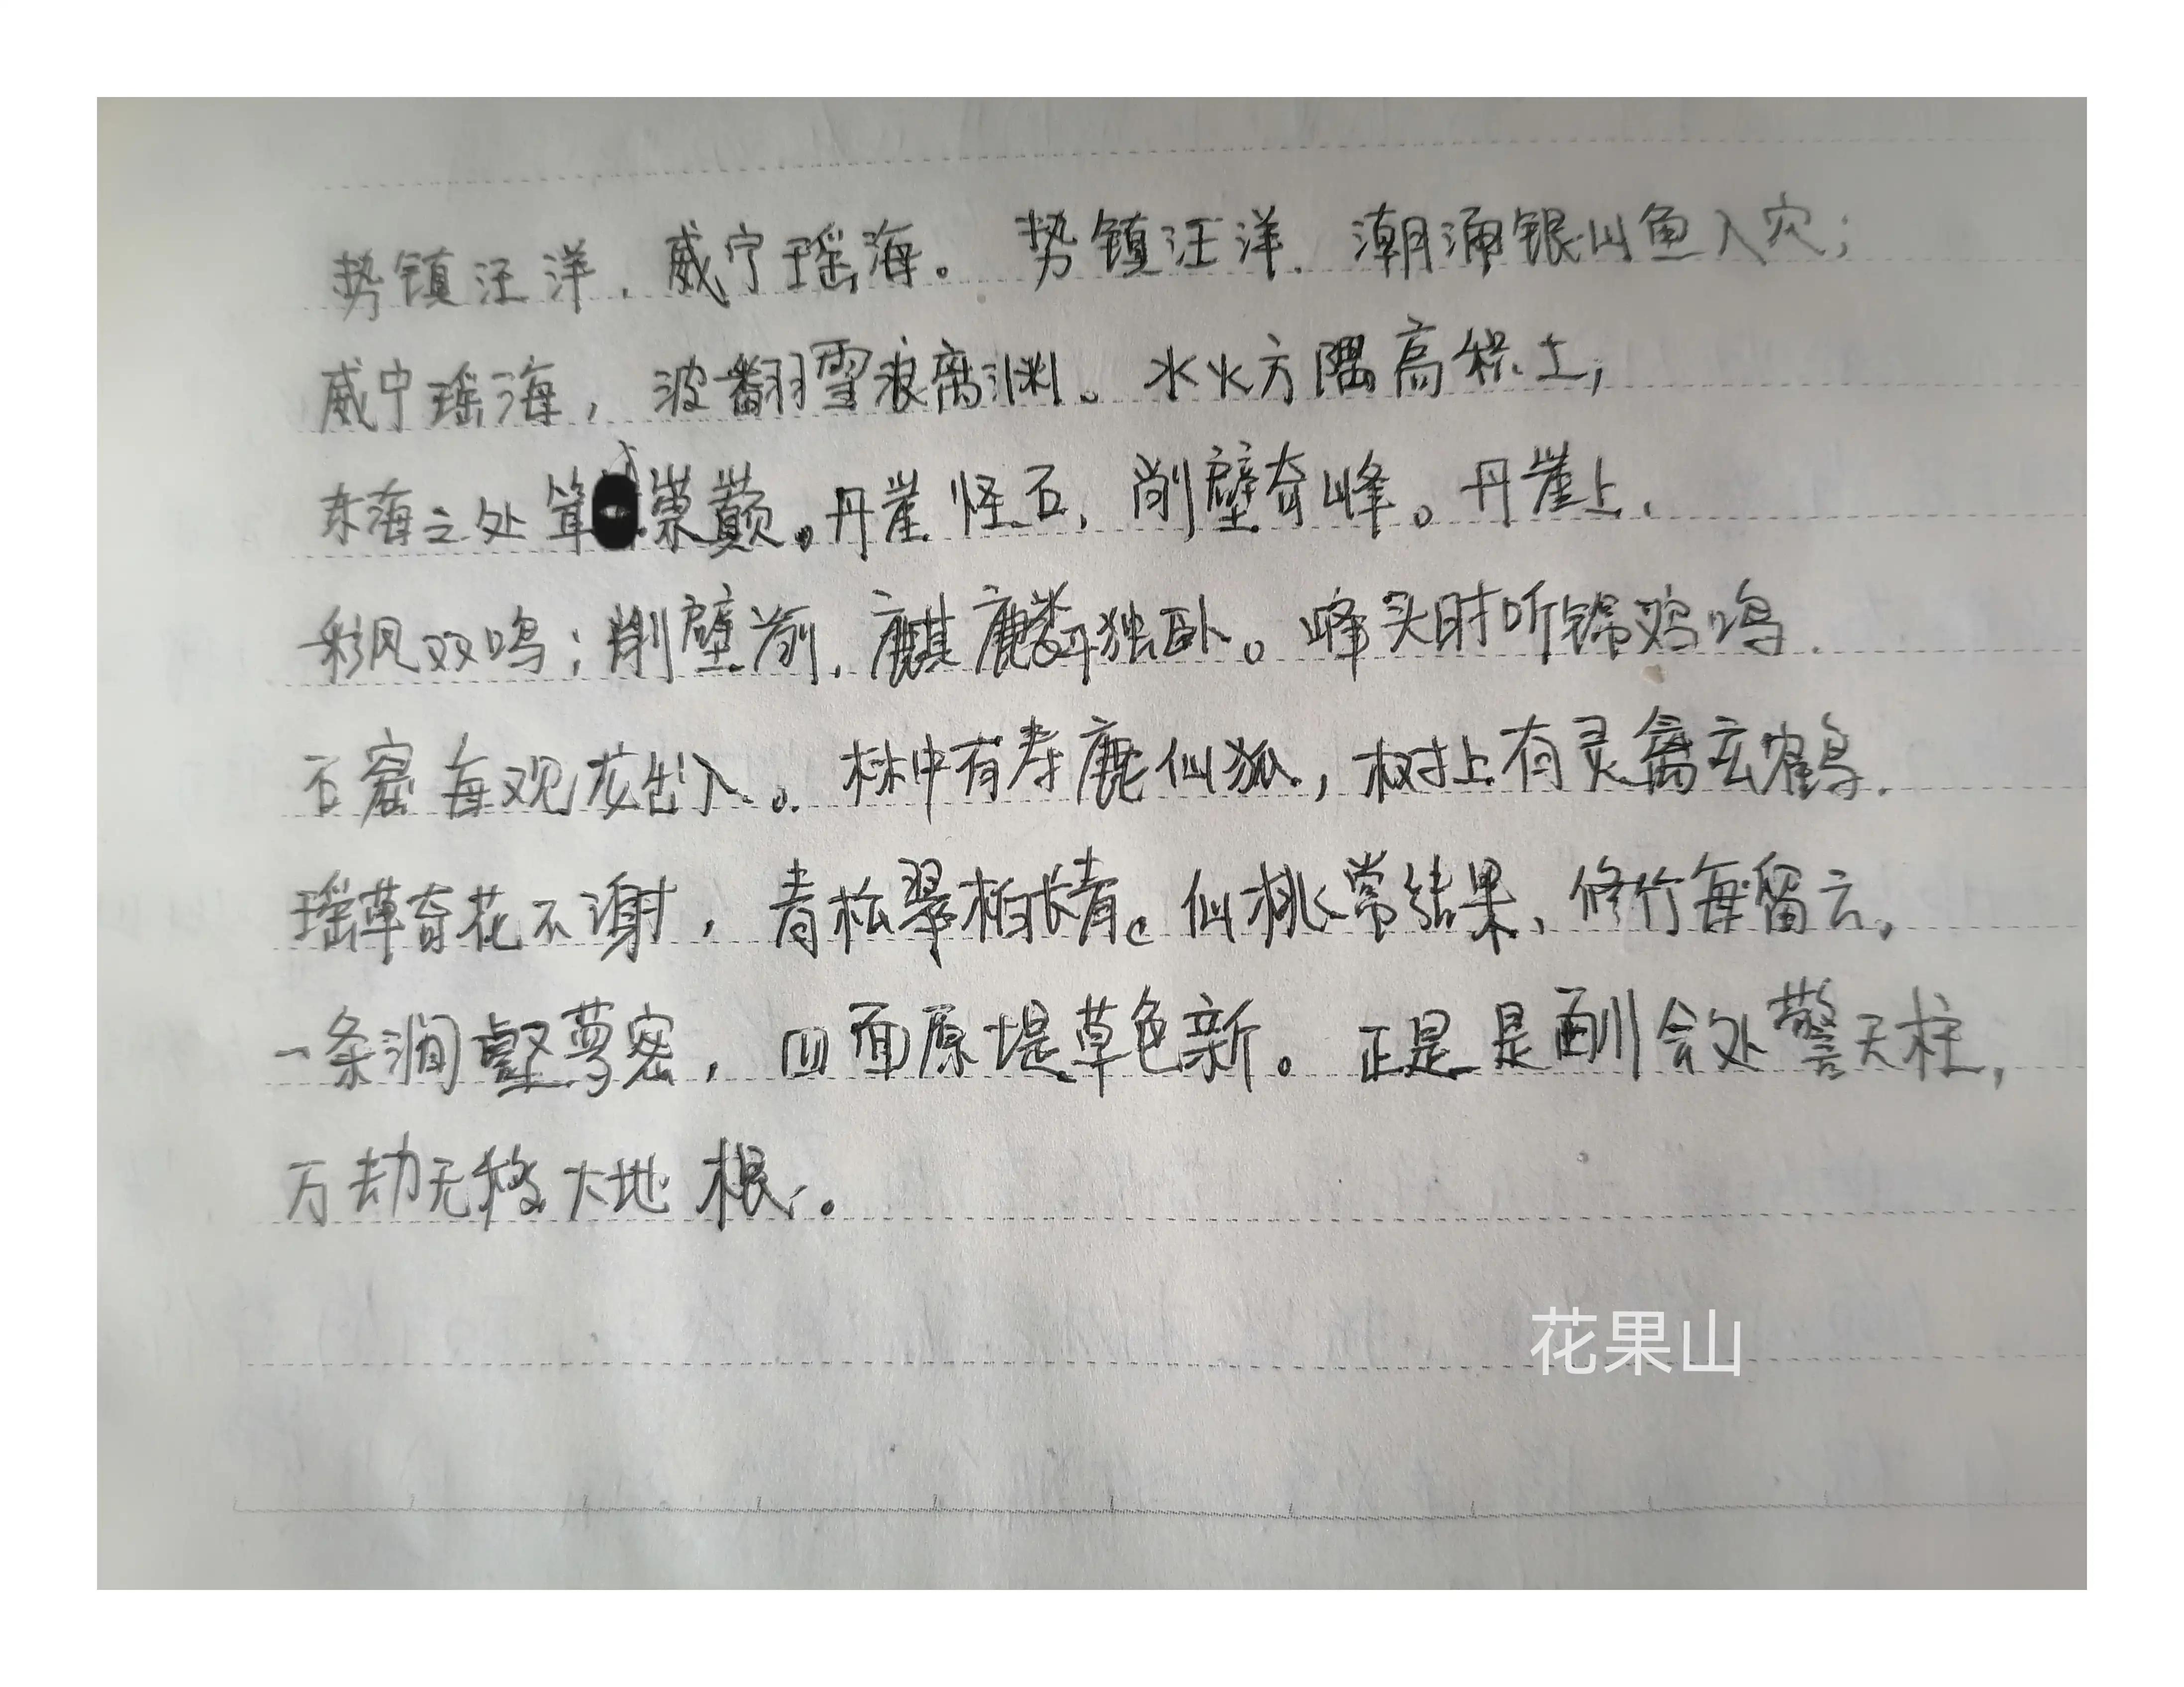 势镇汪洋，威宁瑶海。势镇汪洋，潮涌银山鱼入穴；
威宁瑶海，波翻雪浪离渊。水火方隅高积土；
东海之处耸崇巅。丹崖怪石，削壁奇峰。丹崖上，
彩凤双鸣；削壁前，麒麟独卧。峰头时听锦鸡鸣，
石窟每观龙出入。林中有寿鹿仙狐，树上有灵禽玄鹤。
瑶草奇花不谢，青松翠柏长青。仙桃常结果，修竹每留云。
一条涧壑萝密，四面原堤草色新。正是是会处擎天柱，
万劫无移大地根。
花果山